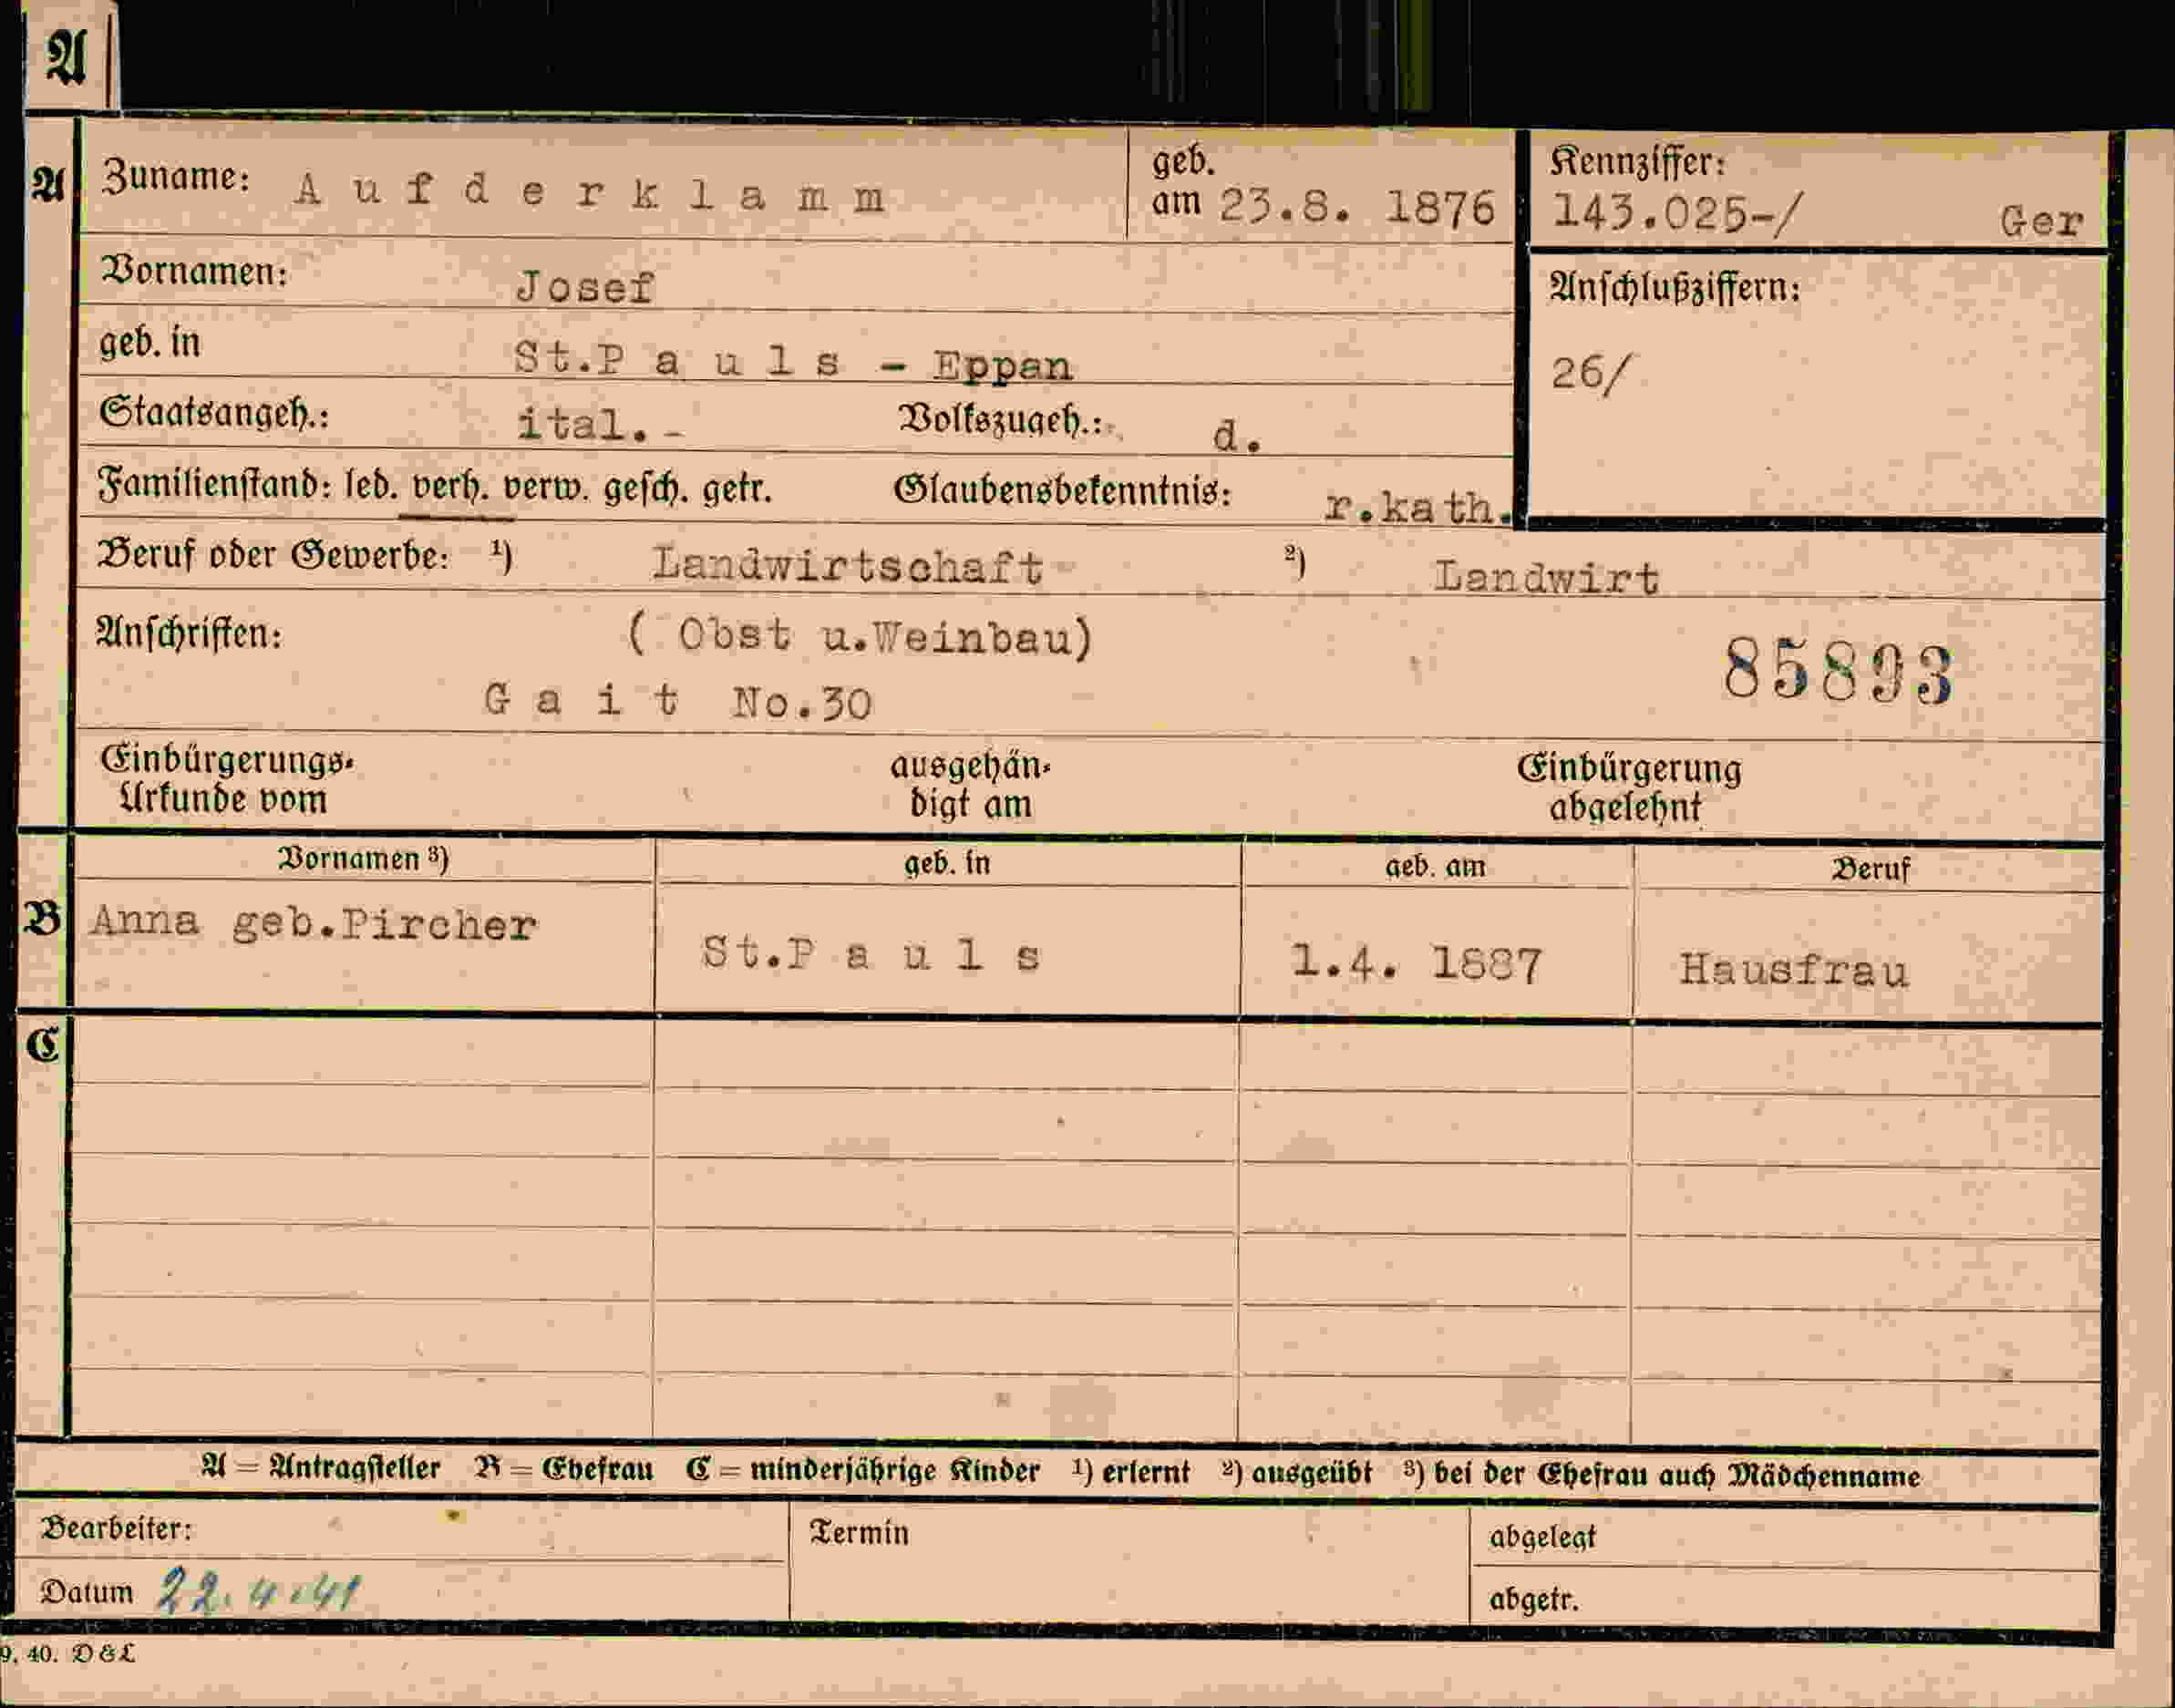 A
A Zuname: Aufderklamm geb. am 23.8. 1876 Kennziffer: 143.025-/ Ger
Vornamen: Josef Anschlußziffern:
geb. in St.Pauls - Eppan 26/
Staatsangeh.: ital.- Volkszugeh.: d.
Familienstand: led. verh. verw. gesch. getr. Glaubensbekenntnis: r.kath.
Beruf oder Gewerbe: ¹) Landwirtschaft ²) Landwirt
Anschriften: ( Obst u.Weinbau) 85893
Gait No.30
Einbürgerungs- ausgehän- Einbürgerung
Urkunde vom digt am abgelehnt
Vornamen ³) geb. in geb. am Beruf
B Anna geb.Pircher St.Pauls 1.4. 1887 Hausfrau
C
A = Antragsteller B = Ehefrau C = minderjährige Kinder ¹) erlernt ²) ausgeübt ³) bei der Ehefrau auch Mädchenname
Bearbeiter: Termin abgelegt
Datum 22.4.41 abgetr.
9. 40. D&L